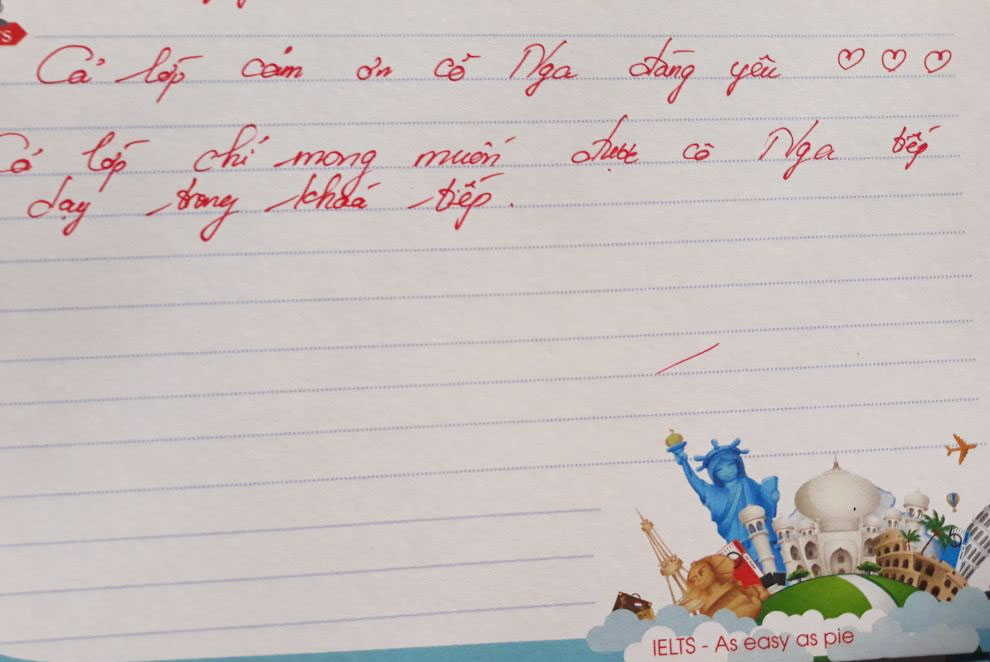 Cả lớp cám ơn cô Nga đáng yêu ♡ ♡ ♡
Cả lớp chỉ mong muốn được cô Nga tiếp
dạy trong khoá tiếp.
IELTS - As easy as pie